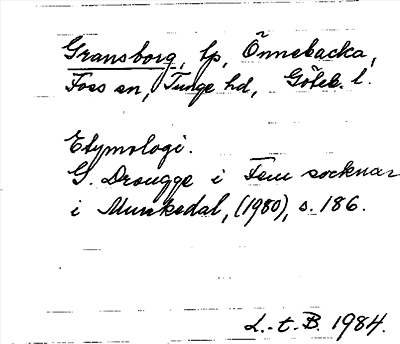 Gransborg, lp, Önnebacka,
Foss sn, Tunge hd, Göteb. l.
Etymologi.
G. Drougge i Fem socknar
i Munkedal, (1980), s. 186.
L.-t. B. 1984.